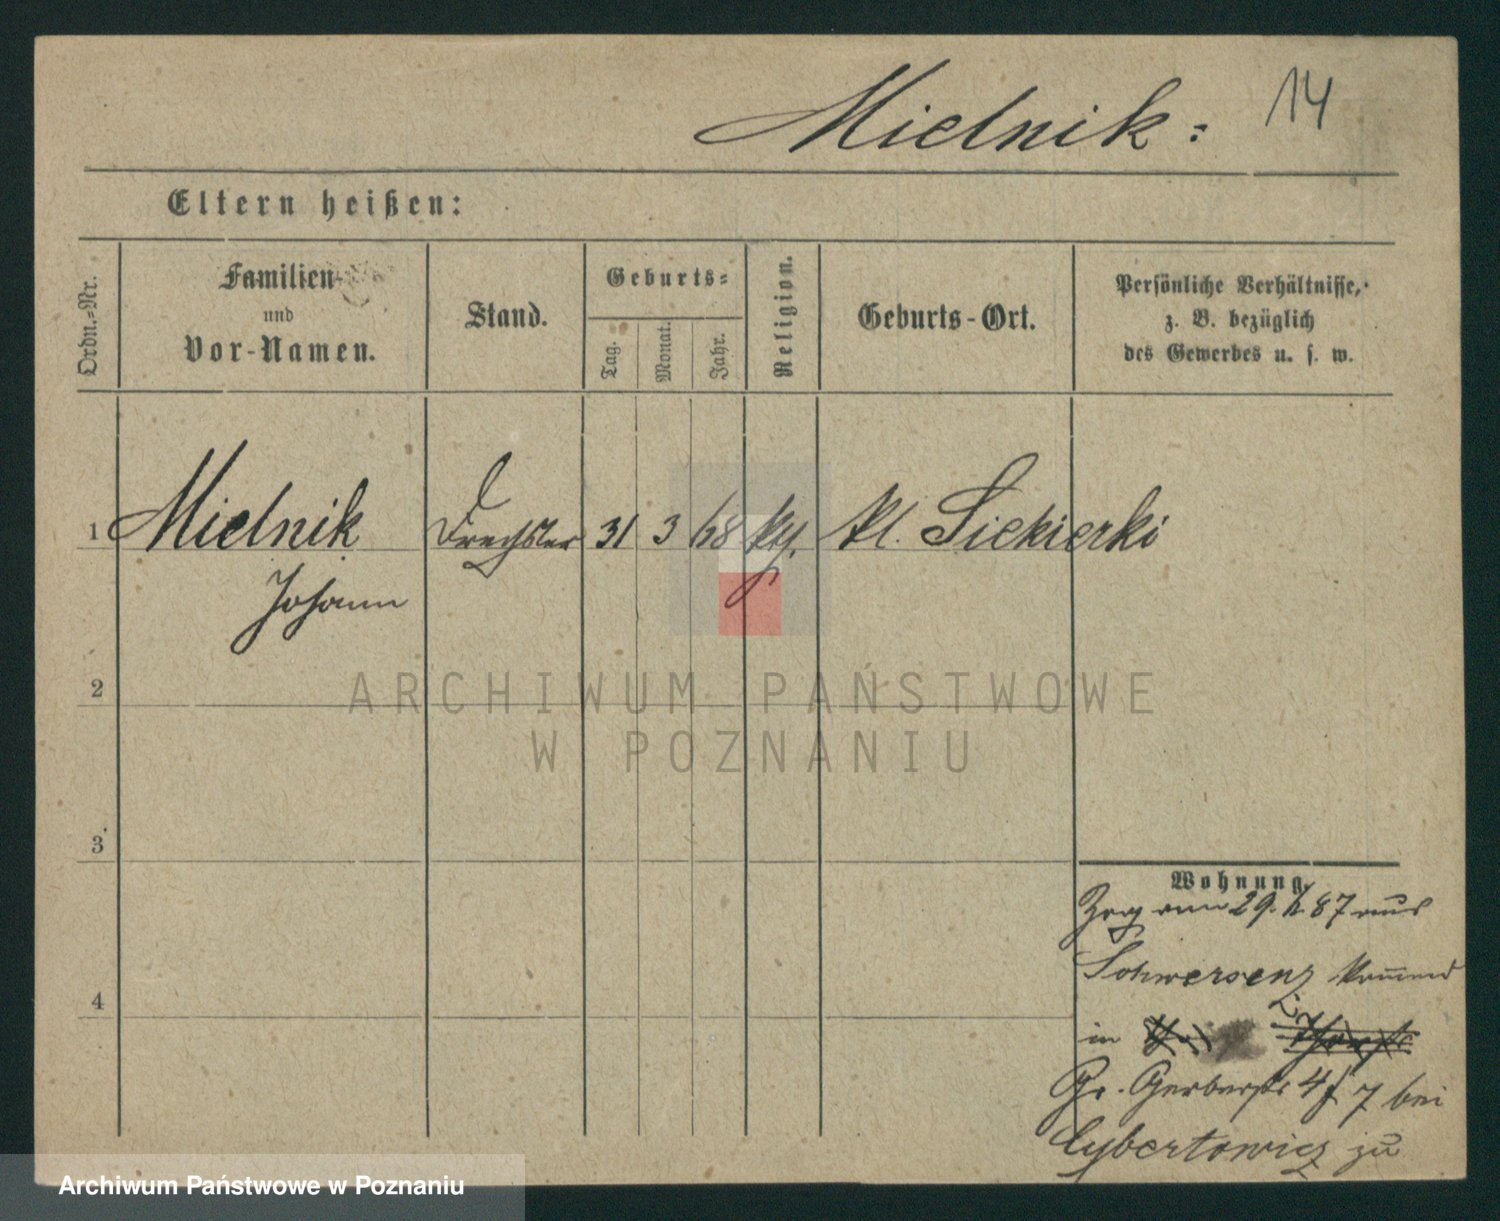 Mielnik: 14
Eltern heißen:
Ordn.-Nr.
Familien-
und
Vor-Namen.
Stand.
Geburts-
Tag.
Monat.
Jahr.
Religion.
Geburts-Ort.
Persönliche Verhältnisse,
z. B. bezüglich
des Gewerbes u. s. w.
1 Mielnik Drechsler 31 3 68 kth. Kl. Siekierki
Johann
2
3
4
Wohnung.
Zog am 29. 87 aus
Schwersenz kommend
in
Gr. Gerberstr 4 7 bei
Cybertowicz zu
ARCHIWUM PAŃSTWOWE
W POZNANIU
Archiwum Państwowe w Poznaniu